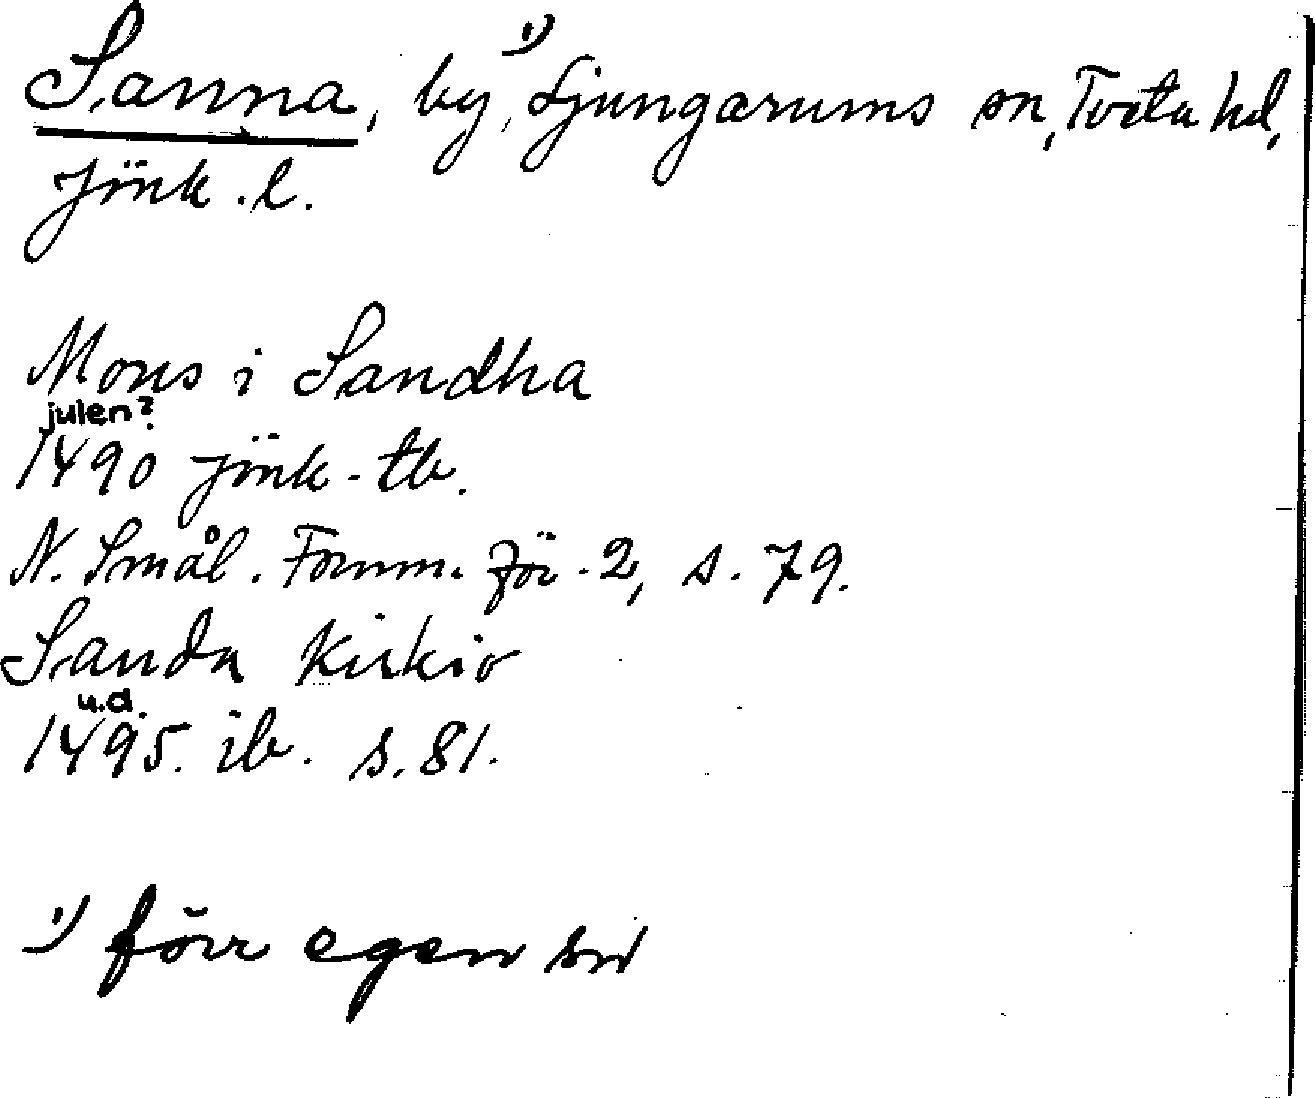 Sanna, by, ¹) Ljungarums sn, Tveta hd,
Jönk. l.
Mons i Sandha
julen?
1490 Jönk. tb.
N. Smål. Fornm. för. 2, s. 79.
Sanda Kirkio
u.d.
1495. ib. s. 81.
¹) förr egen sn